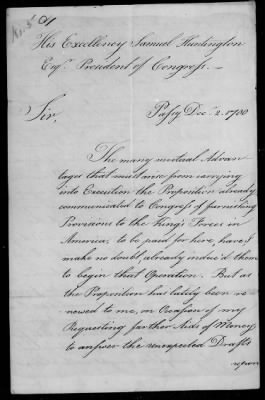 His Excellency Samuel Huntington
Esqr. President of Congress.
Sir,
Passy Decr. 2. 1780
The many mutual Advan
tages that must arise from carrying
into Execution the Proposition already
communicated to Congress of furnishing
Provisions to the King's Forces in
America, to be paid for here, have I
make no doubt already induc'd them
to begin that Operation. But as
the Proposition has lately been re
newed to me, on Occasion of my
Requesting farther Aids of Money
to answer the unexpected Drafts
upon